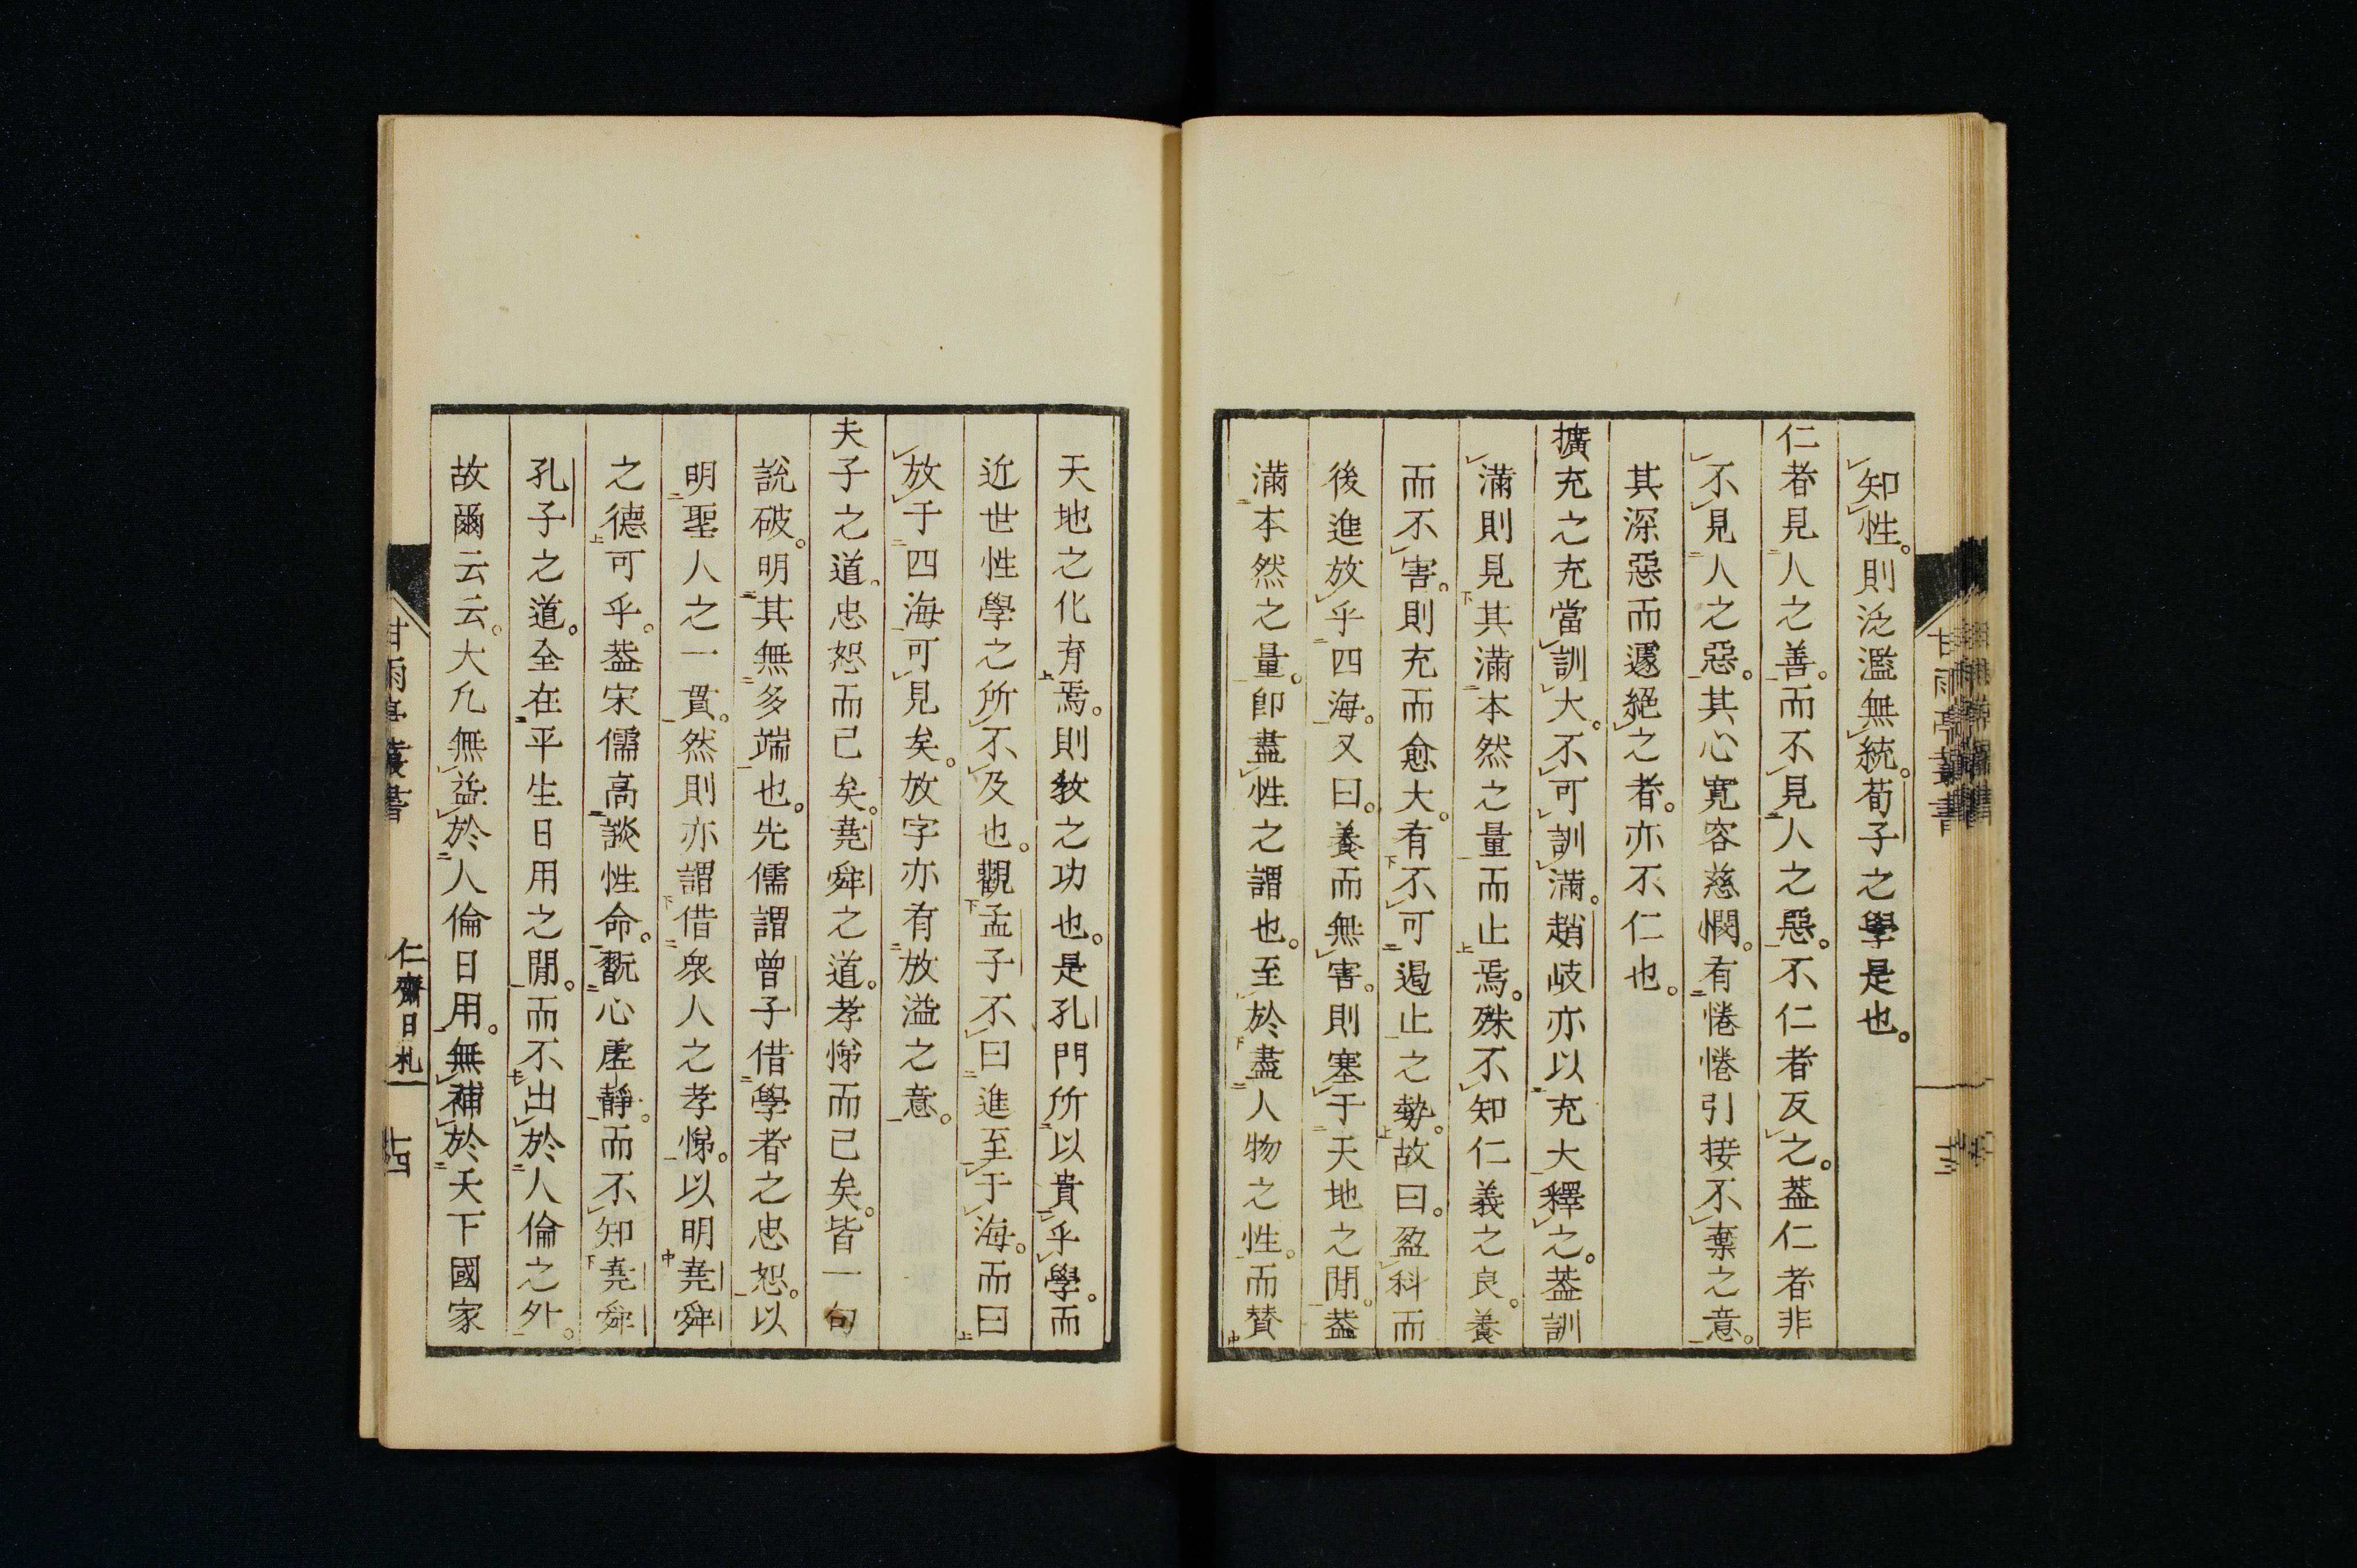 知性。則泛濫無統。荀子之學是也。
仁者見人之善。而不見人之惡。不仁者反之。蓋仁者非
不見人之惡。其心寬容慈憫。有惓惓引接不棄之意。
其深惡而遽絕之者。亦不仁也。
擴充之充當訓大。不可訓滿。趙岐亦以充大釋之。蓋訓
滿則見其滿本然之量而止焉。殊不知仁義之良。養
而不害。則充而愈大。有不可遏止之勢。故曰。盈科而
後進放乎四海。又曰。養而無害。則塞于天地之閒。蓋
滿本然之量。卽盡性之謂也。至於盡人物之性。而贊
甘雨亭叢書
十三
天地之化育焉。則敎之功也。是孔門所以貴乎學。而
近世性學之所不及也。觀孟子不曰進至于海。而曰
放于四海可見矣。放字亦有放溢之意。
夫子之道。忠恕而已矣。堯舜之道。孝悌而已矣。皆一句
說破。明其無多端也。先儒謂曾子借學者之忠恕。以
明聖人之一貫。然則亦謂借衆人之孝悌。以明堯舜
之德可乎。蓋宋儒高談性命。翫心虛靜。而不知堯舜
孔子之道。全在平生日用之閒。而不出於人倫之外。
故爾云云。大凡無益於人倫日用。無補於天下國家
甘雨亭叢書
仁齋日札
十四